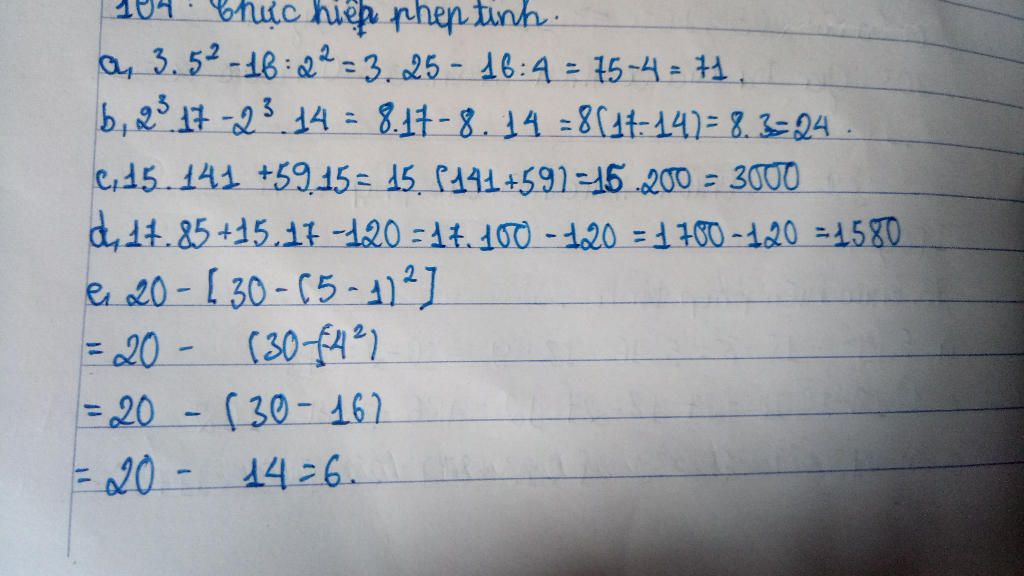 104. Thực hiện phép tính.
a, 3.5² - 16 : 2² = 3. 25 - 16 : 4 = 75 - 4 = 71.
b, 2³.17 - 2³.14 = 8.17 - 8. 14 = 8(17-14) = 8.3 = 24.
c, 15. 141 + 59.15 = 15. (141 + 59) = 15.200 = 3000
d, 17.85 + 15.17 - 120 = 17.100 - 120 = 1700 - 120 = 1580
e, 20 - [30 - (5 - 1)²]
= 20 - (30 - 4²)
= 20 - (30 - 16)
= 20 - 14 = 6.